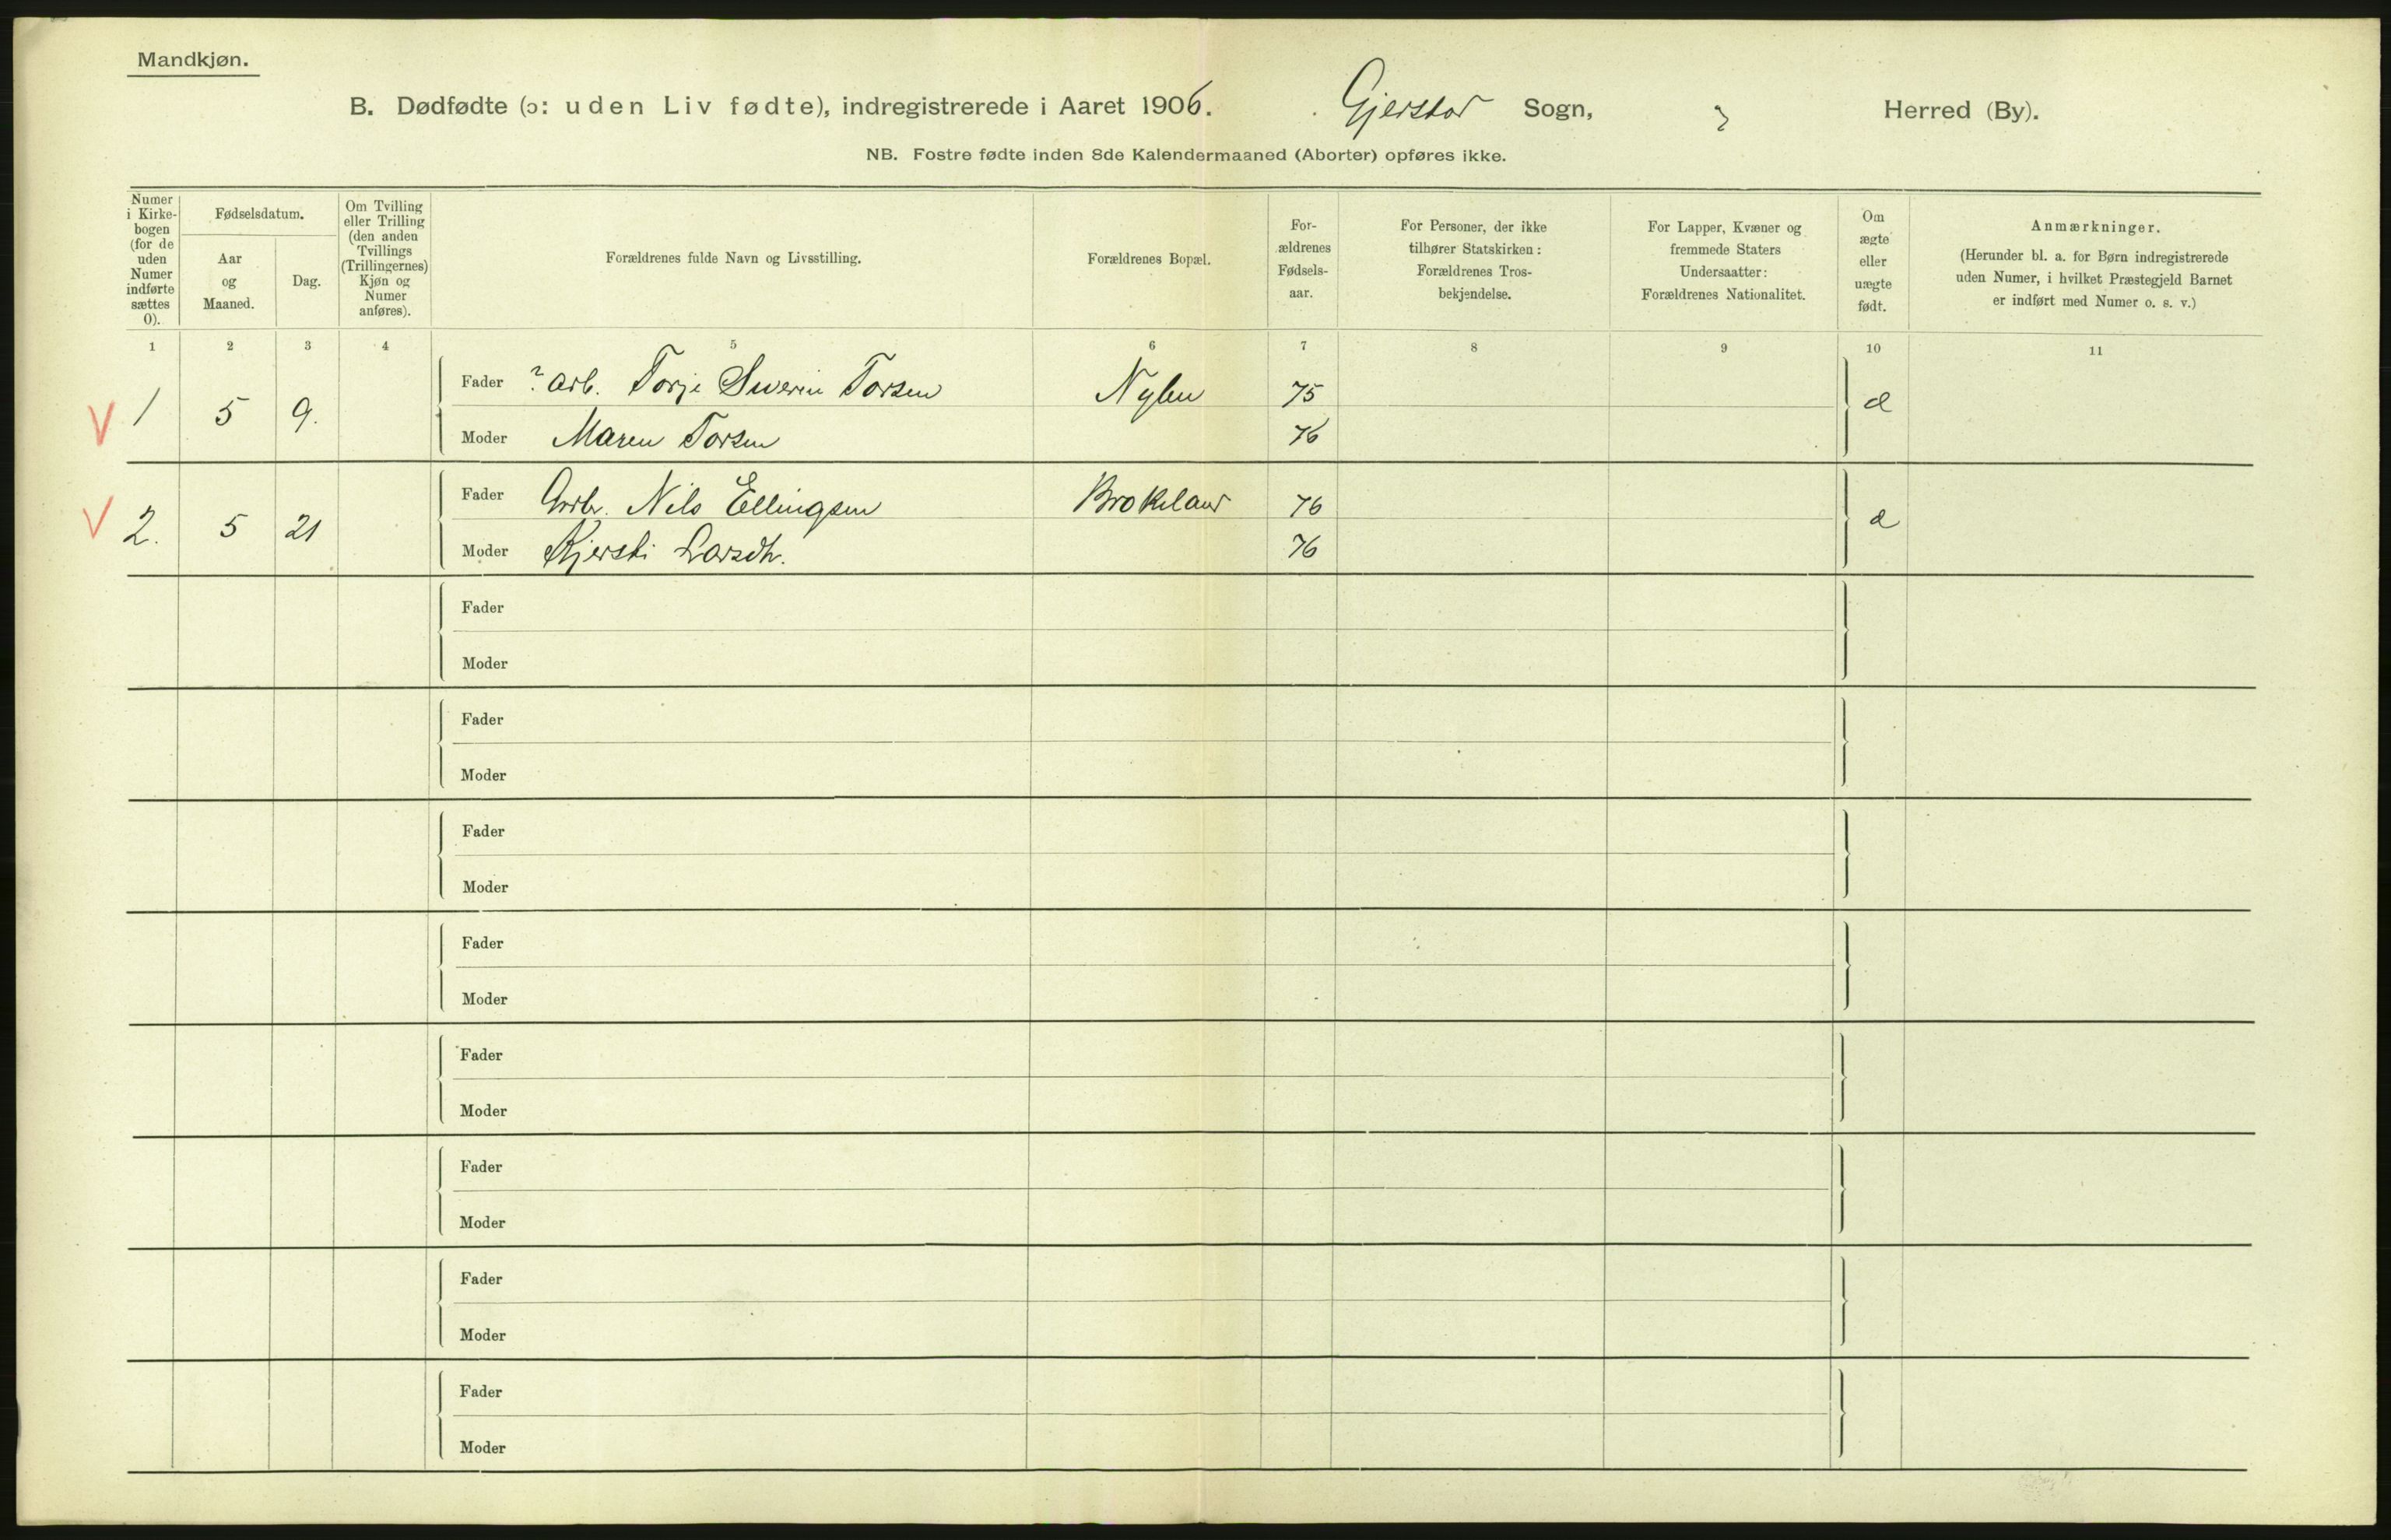 Mandkjøn.
B. Dødfødte (ɔ: uden Liv fødte), indregistrerede i Aaret 1906. Gjerstad Sogn, Herred (By).
NB. Fostre fødte inden 8de Kalendermaaned (Aborter) opføres ikke.
Numer
i Kirke-
bogen
(for de
uden
Numer
indførte
sættes
0).
Fødselsdatum.
Aar
og
Maaned.
Dag.
Om Tvilling
eller Trilling
(den anden
Tvillings
(Trillingernes)
Kjøn og
Numer
anføres).
Forældrenes fulde Navn og Livsstilling.
Forældrenes Bopæl.
For-
ældrenes
Fødsels-
aar.
For Personer, der ikke
tilhører Statskirken:
Forældrenes Tros-
bekjendelse.
For Lapper, Kvæner og
fremmede Staters
Undersaatter:
Forældrenes Nationalitet.
Om
ægte
eller
uægte
født.
Anmærkninger.
(Herunder bl. a. for Børn indregistrerede
uden Numer, i hvilket Præstegjeld Barnet
er indført med Numer o. s. v.)
1 2 3 4 5 6 7 8 9 10 11
V 1 5 9. Fader ? arb. Torje Severin Torsen Nylen 75 æ
Moder Maren Torsen 76
V 2. 5 21 Fader Arb. Nils Ellingsen Brokeland 76 æ
Moder Kjersti Larsdtr. 76
Fader
Moder
Fader
Moder
Fader
Moder
Fader
Moder
Fader
Moder
Fader
Moder
Fader
Moder
Fader
Moder